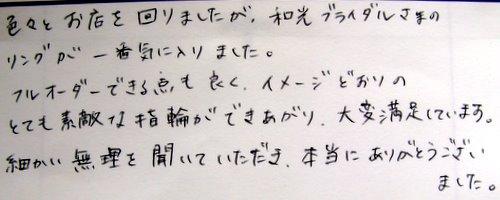 色々と お店を 回りましたが、和光ブライダルさまの
リングが 一番気に入り ました。
フルオーダーできる点も 良く、イメージどおりの
とても 素敵な 指輪が できあがり、大変満足しています。
細かい 無理を 聞いていただき、本当に ありがとうござい
ました。